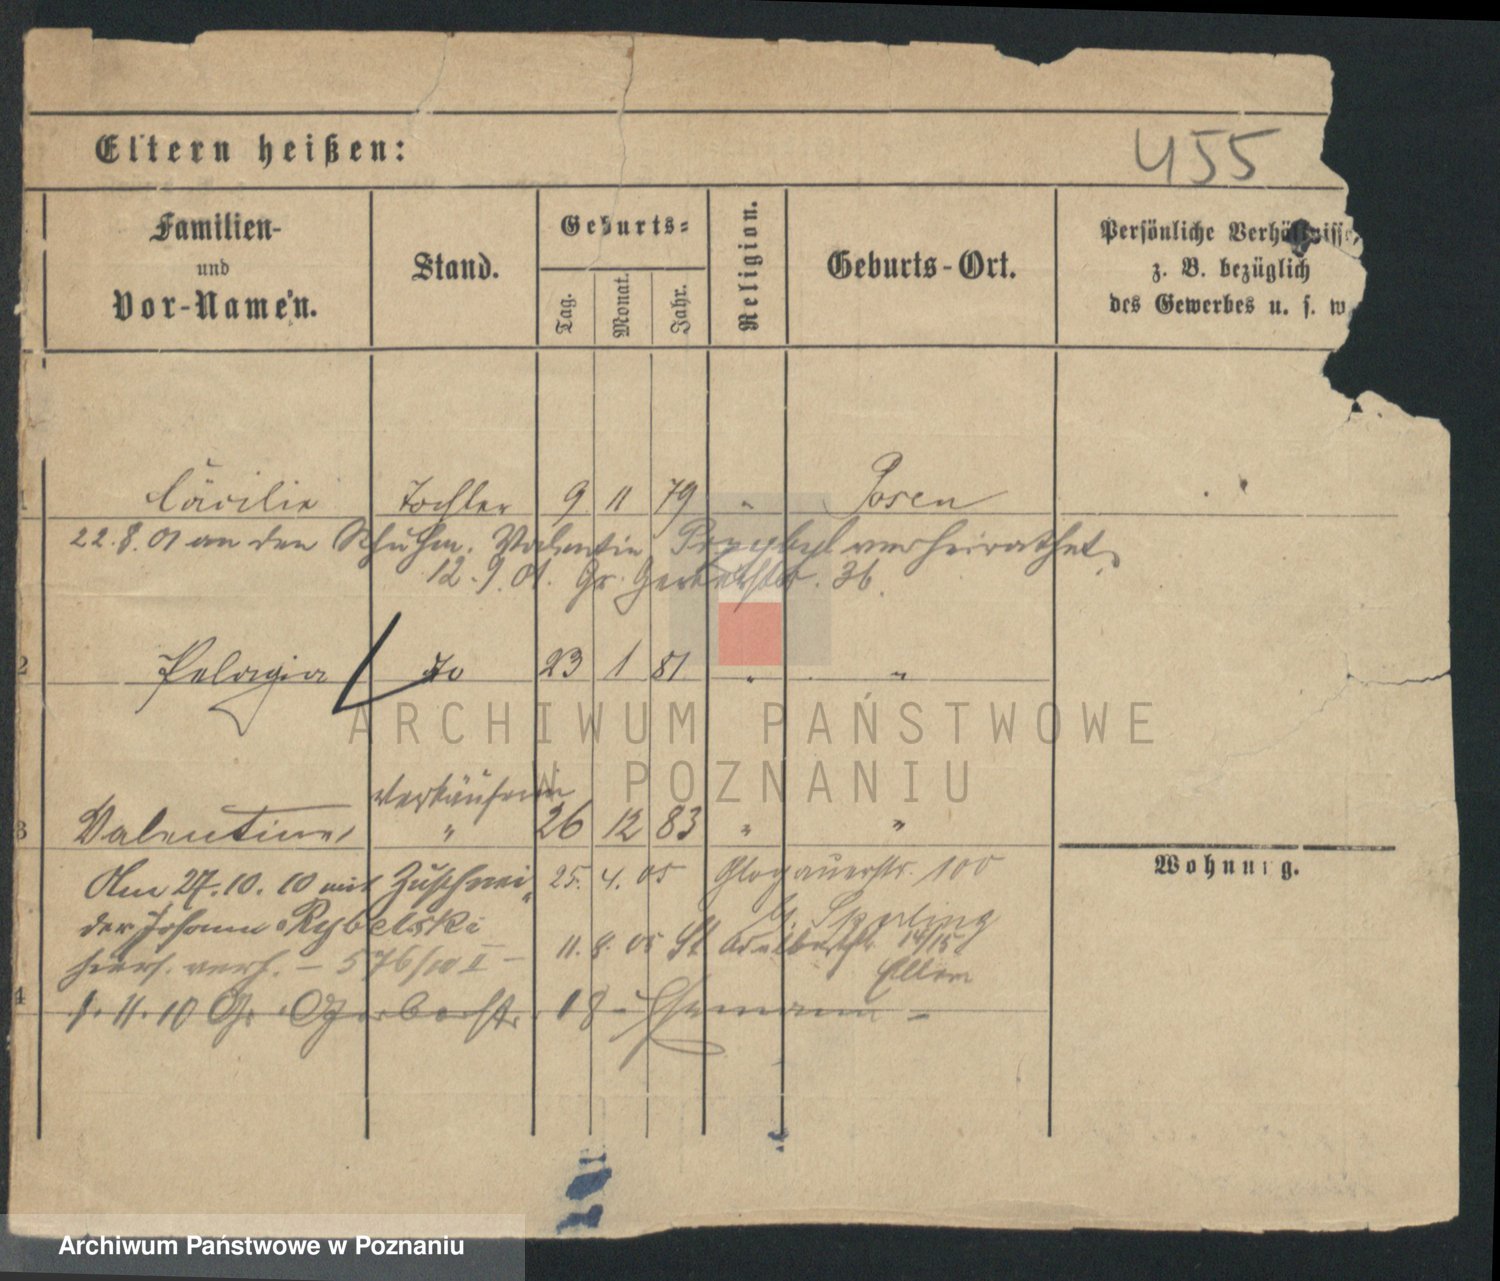 Eltern heißen:
455
Familien-
und
Vor-Namen.
Stand.
Geburts-
Tag.
Monat.
Jahr.
Religion.
Geburts-Ort.
Persönliche Verhältnisse
z. B. bezüglich
des Gewerbes u. s. w
1 Cäcilie Tochter 9 11 79 " Posen
22.8.01 an den Schuhm. Valentin Przybyl verheirathet
12.9.01. Gr. Gerberstr. 36.
2 Pelagia To 23 1 81 " "
ARCHIWUM PAŃSTWOWE
W POZNANIU
Verkäuferin
3 Valentine, " 26 12 83 " "
Wohnung.
Am 27.10.10 mit Zuschnei- 25. 4. 05 Glogauerstr. 100
der Johann Rybelski
11. 8. 05 St Adalbertstr. 14/15
hiers. verh. – 576/10 II –
Eltern
4 1.11.10 Gr. Gerberstr. 18 – Ehemann –
Archiwum Państwowe w Poznaniu